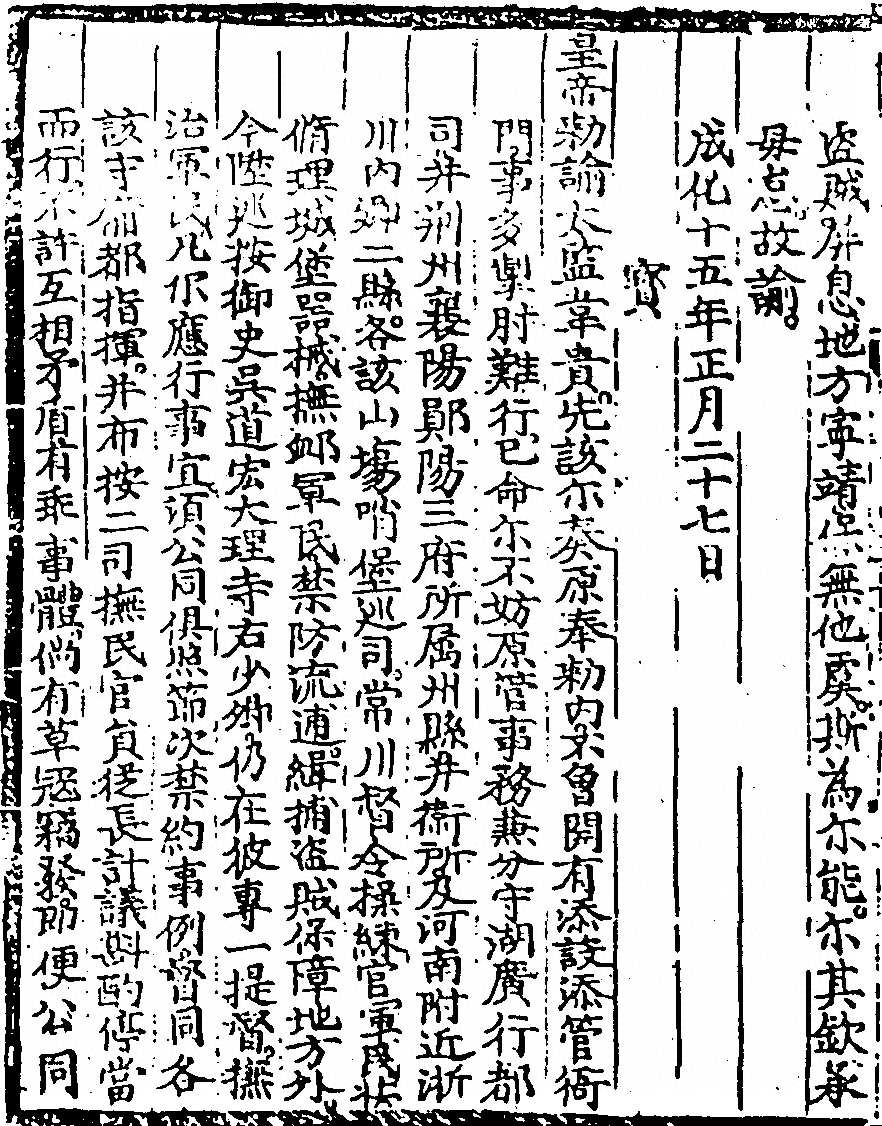 盗賊屏息。地方寜靖。然無他虞。斯為尔能。尔其欽承
毋怠。故諭。
成化十五年正月二十七日
寳
皇帝勑諭太監韋貴。先該尔奏原奉勑内不曾開有添設添管衙
門。事多掣肘難行。已命尔不妨原管事務兼分守湖廣行都
司并荆州襄陽鄖陽三府所属州縣并衛所及河南附近淅
川内鄉二縣。各該山塲哨堡巡司。常川督令操練官軍民壮
脩理城堡器械。撫䘏軍民。禁防流逋。緝捕盗賊。保障地方外。
今陞巡按御史吳道宏大理寺右少卿。仍在彼專一提督。撫
治軍民。凡伱應行事宜。須公同俱照節次禁約事例。督同各
該守備都指揮。并布按二司撫民官員從長計議。斟酌停當
而行。不許互相矛盾。有乖事體。倘有草冦竊發。即便公同